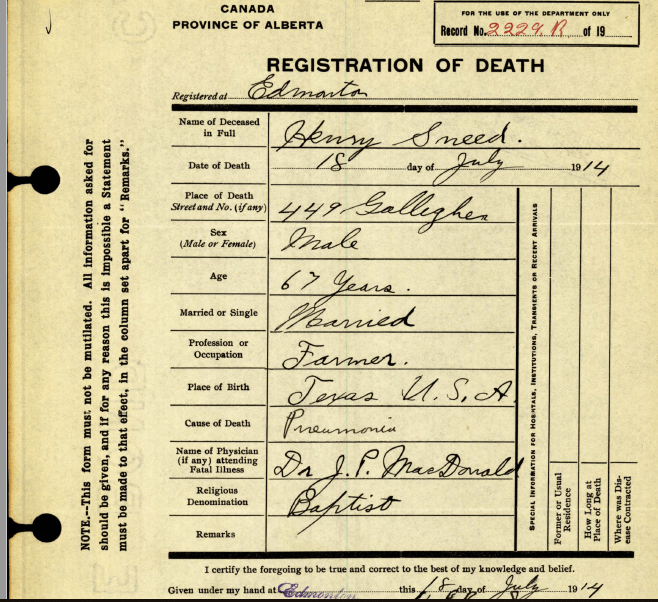 CANADA
PROVINCE OF ALBERTA
FOR THE USE OF THE DEPARTMENT ONLY
Record No. 2229. R of 19
REGISTRATION OF DEATH
Registered at Edmonton
Name of Deceased in Full Henry Sneed.
Date of Death 18 day of July 1914
Place of Death Street and No. (if any) 449 Gallegher
Sex (Male or Female) Male
Age 67 Years.
Married or Single Married
Profession or Occupation Farmer.
Place of Birth Texas U.S.A.
Cause of Death Pneumonia
Name of Physician (if any) attending Fatal Illness Dr J.P. MacDonald
Religious Denomination Baptist
Remarks
SPECIAL INFORMATION FOR HOSPITALS, INSTITUTIONS, TRANSIENTS OR RECENT ARRIVALS
Former or Usual Residence
How Long at Place of Death
Where was Disease Contracted
NOTE.--This form must not be mutilated. All information asked for
should be given, and if for any reason this is impossible a Statement
must be made to that effect, in the column set apart for "Remarks."
I certify the foregoing to be true and correct to the best of my knowledge and belief.
Given under my hand at Edmonton this 18 day of July 1914